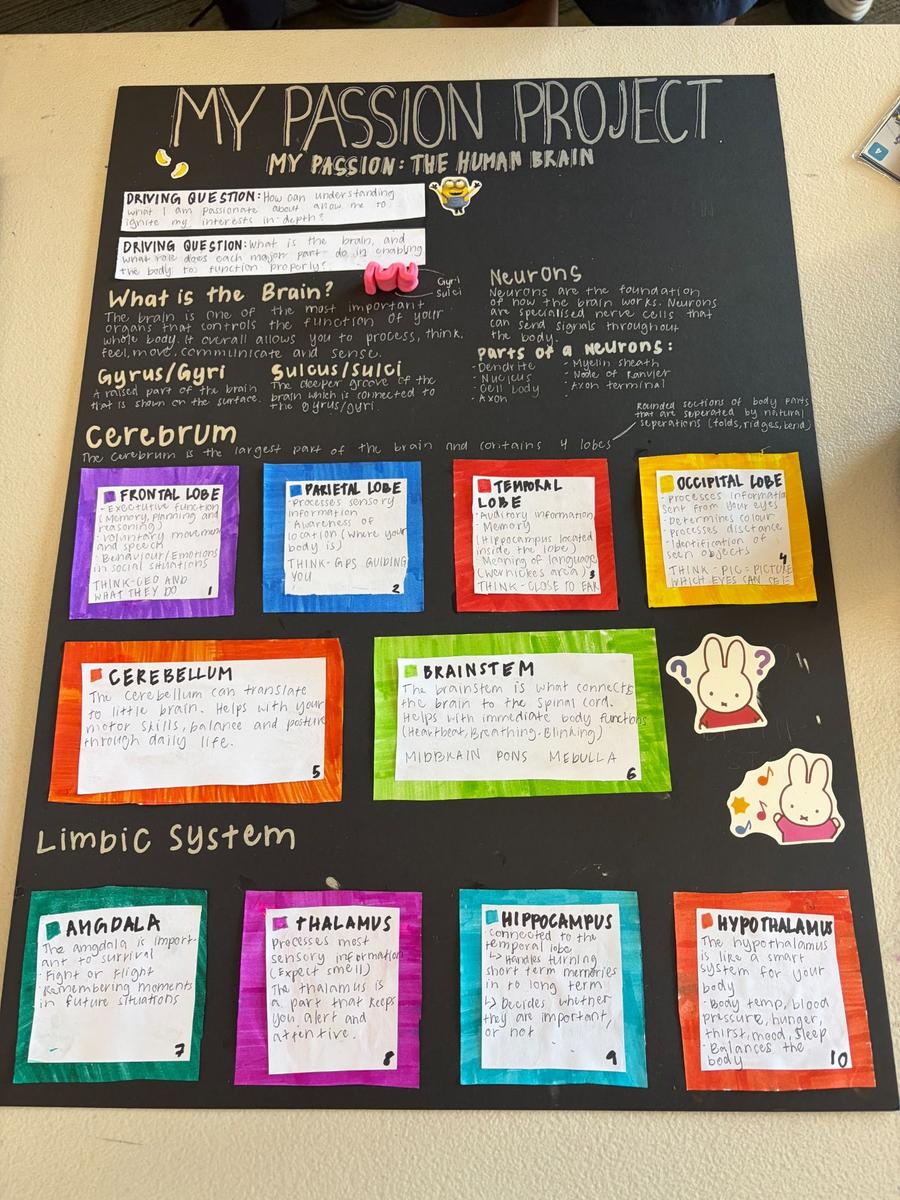 MY PASSION PROJECT
MY PASSION: THE HUMAN BRAIN
DRIVING QUESTION: How can understanding
what I am passionate about allow me to
ignite my interests in-depth?
DRIVING QUESTION: What is the brain, and
what role does each major part do in enabling
the body to function properly?
Gyri
Sulci
What is the Brain?
The brain is one of the most important
organs that controls the function of your
whole body. It overall allows you to process, think,
feel, move, communicate and sense.
Neurons
Neurons are the foundation
of how the brain works. Neurons
are specialised nerve cells that
can send signals throughout
the body.
Parts of a Neurons:
- Dendrite
- Nucleus
- Cell body
- Axon
- Myelin sheath
- Node of Ranvier
- Axon terminal
Gyrus/Gyri
A raised part of the brain
that is shown on the surface.
Sulcus/sulci
The deeper groove of the
brain which is connected to
the Gyrus/Gyri.
Rounded sections of body parts
that are seperated by natural
seperations (folds, ridges, bend)
Cerebrum
The cerebrum is the largest part of the brain and contains 4 lobes
FRONTAL LOBE
- Executive function
(Memory, planning and
reasoning)
- Voluntary movement
and speech
- Behaviour/Emotions
in social situations
THINK-CEO AND
WHAT THEY DO
1
PARIETAL LOBE
- Processes sensory
information
- Awareness of
location (where your
body is)
THINK-GPS GUIDING
YOU
2
TEMPORAL
LOBE
- Auditory information
- Memory
(Hippocampus located
inside the lobe)
- Meaning of language
(Wernickes area)
3
THINK-CLOSE TO EAR
OCCIPITAL LOBE
- Processes information
sent from your eyes
- Determines colour
- Processes distance
- Identification of
seen objects
4
THINK-PIC=PICTURE
WHICH EYES CAN SEE
CEREBELLUM
The cerebellum can translate
to little brain. Helps with your
motor skills, balance and posture
through daily life.
5
BRAINSTEM
The brainstem is what connects
the brain to the spinal cord.
Helps with immediate body functions
(Heartbeat, Breathing, Blinking)
MIDBRAIN PONS MEDULLA
6
? ?
Limbic System
AMGDALA
The amgdala is import-
ant to survival
- Fight or Flight
- Remembering moments
in future situations
7
THALAMUS
Processes most
sensory information
(Expect smell)
The thalamus is
a part that keeps
you alert and
attentive.
8
HIPPOCAMPUS
Connected to the
temporal lobe
↳ Handles turning
short term memories
in to long term
↳ Decides whether
they are important,
or not
9
HYPOTHALAMUS
The hypothalamus
is like a smart
system for your
body
- Body temp, blood
pressure, hunger,
thirst, mood, sleep
- Balances the
body
10